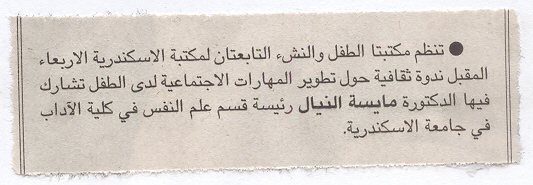 ● تنظم مكتبتا الطفل والنشء التابعتان لمكتبة الاسكندرية الاربعاء
المقبل ندوة ثقافية حول تطوير المهارات الاجتماعية لدى الطفل تشارك
فيها الدكتورة مايسة النيال رئيسة قسم علم النفس في كلية الآداب
في جامعة الاسكندرية.